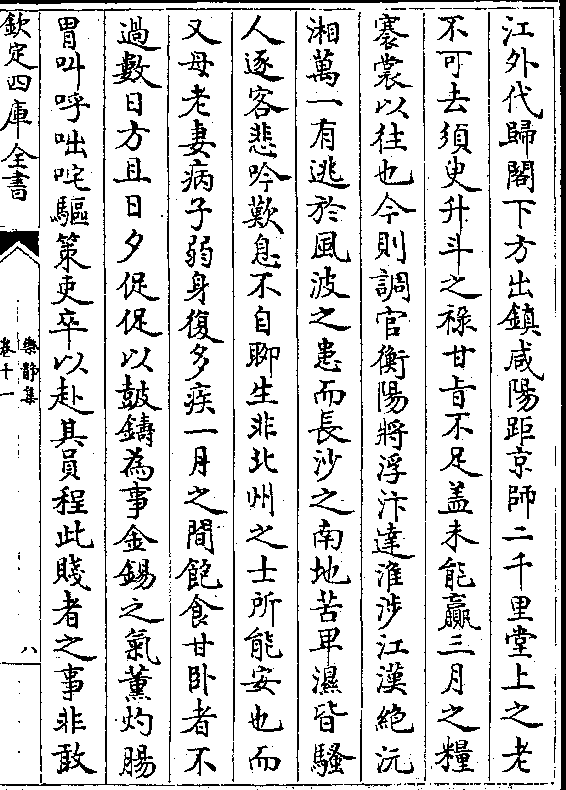 江外代歸閣下方出鎮咸陽距京師二千里堂上之老
不可去須臾升斗之祿甘㫖不足盖未能贏三月之糧
褰裳以往也今則調官衡陽將浮汴達淮涉江漢絶沅
湘萬一有逃於風波之患而長沙之南地苦卑濕皆騷
人逐客悲吟歎息不自聊生非北州之士所能安也而
又母老妻病子弱身復多疾一月之間飽食甘卧者不
過數日方且日夕促促以鼓鑄為事金錫之氣薰灼腸
胃叫呼咄咤驅策吏卒以赴其員程此賤者之事非敢
欽定四庫全書
樂靜集
卷十一
八